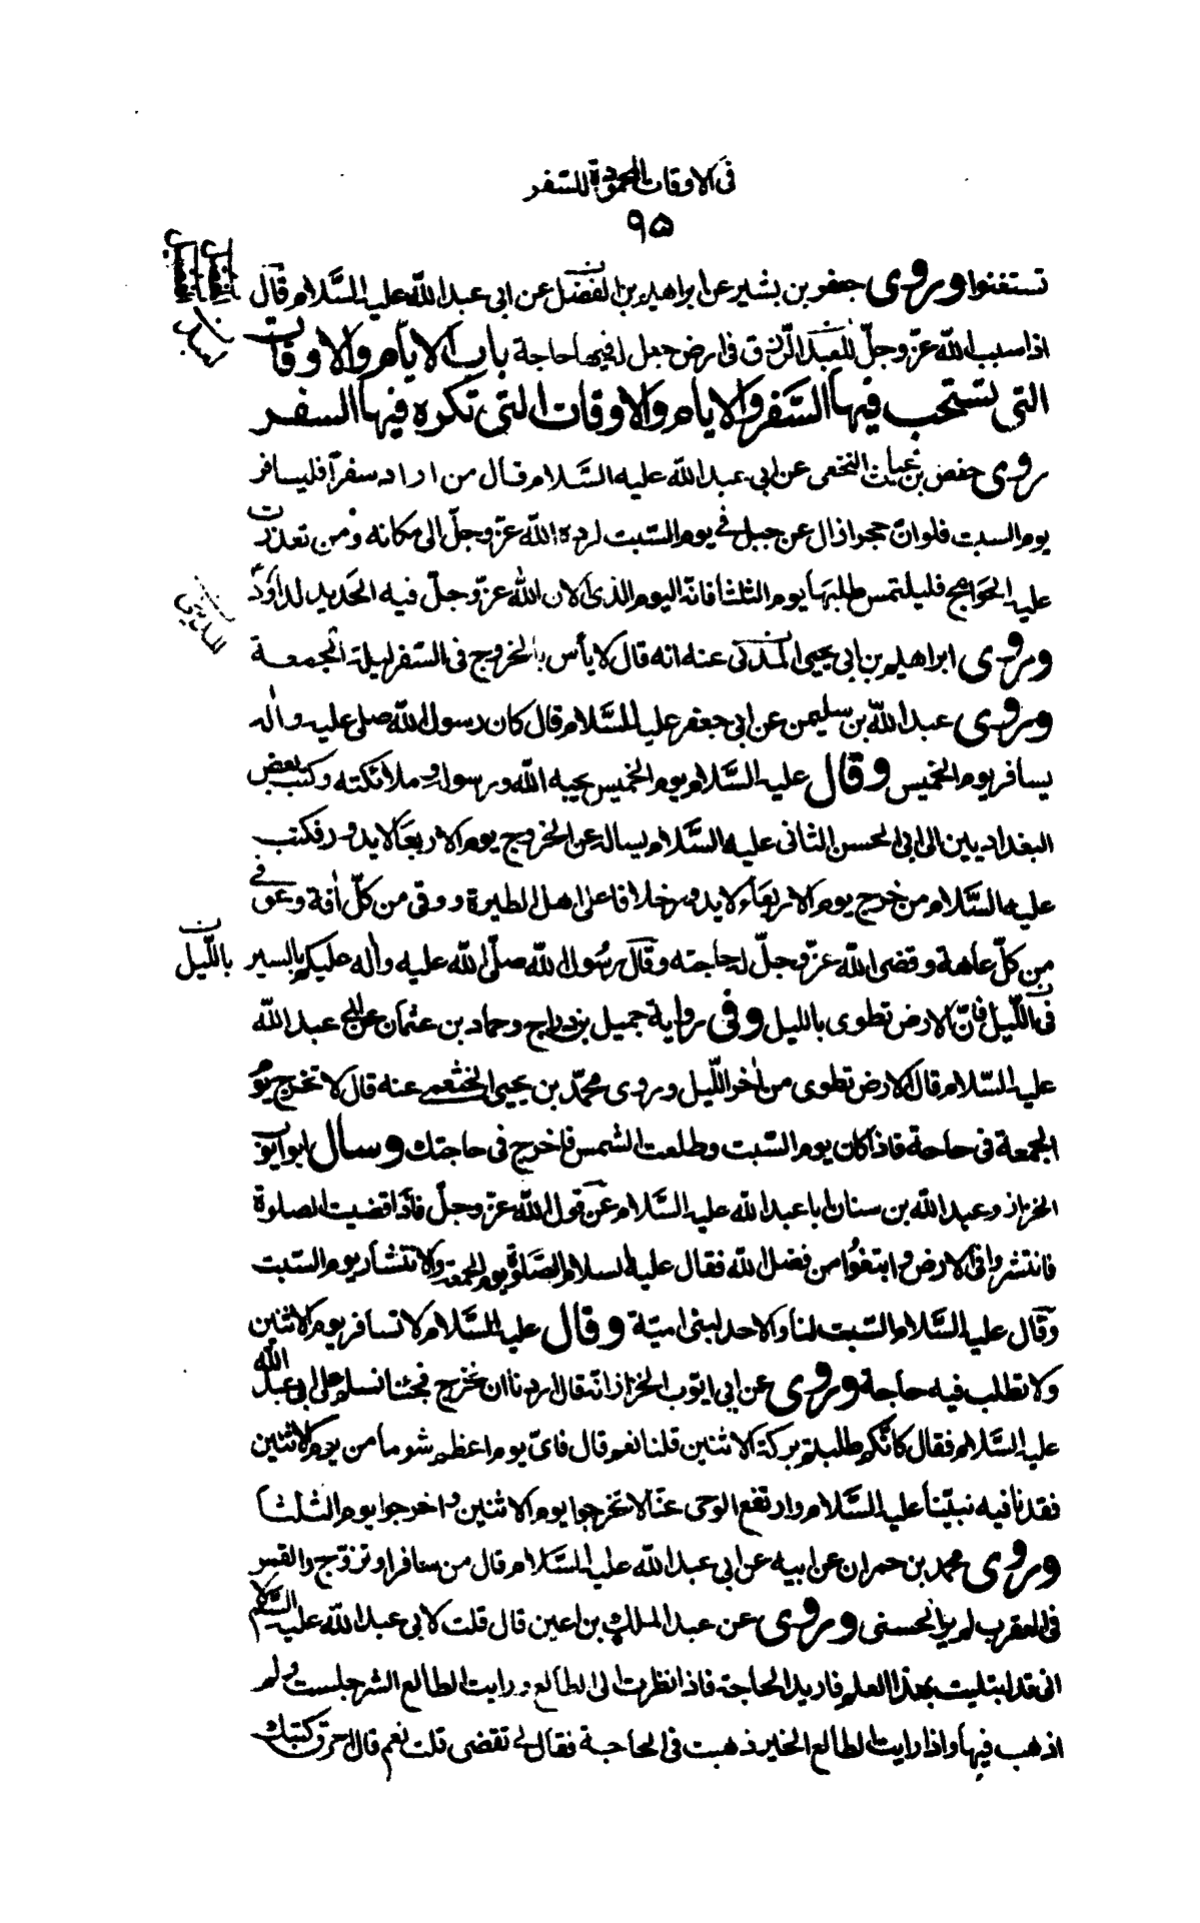 فى الاوقات المحمودة للسفر
٩٥
تستغنوا وروى جعفر بن بشير عن ابراهيم بن الفضل عن ابى عبد الله عليه السّلام قال
اذا سبب الله عزّ وجلّ للعبد الرّزق فى ارض جعل له فيها حاجة باب الايام والاوقات
التى تستحب فيها السّفر والايام والاوقات التى تكره فيها السفر
روى حفص بن غياث النخعى عن ابى عبد الله عليه السّلام قال من اراد سفرا فليسافر
يوم السبت فلو انّ حجرا زال عن جبل فى يوم السّبت لرده الله عزّ وجلّ الى مكانه ومن تعذرت
عليه الحوايج فليلتمس طلبها يوم الثلثا فانه اليوم الذى الان الله عزّ وجلّ فيه الحديد لداود
وروى ابراهيم بن ابى يحيى المدنى عنه انه قال لا بأس بالخروج فى السّفر ليلة الجمعة
وروى عبد الله بن سليمن عن ابى جعفر عليه السّلام قال كان رسول الله صلى عليه واله
يسافر يوم الخميس وقال عليه السّلام يوم الخميس يحبه الله ورسوله وملائكته وكتب بعض
البغداديين الى ابى الحسن الثانى عليه السّلام يساله عن الخروج يوم الاربعا لا يدور فكتب
عليه السّلام من خرج يوم الاربعاء لا يدور خلافا على اهل الطيرة ووقى من كلّ افة وعوفى
من كلّ عاهة وقضى الله عزّ وجلّ له حاجته وقال رسول الله صلّى الله عليه واله عليكم بالسير
بالليل
فى الليل فانّ الارض تطوى بالليل وفى رواية جميل بن دراج وحماد بن عثمان عن ابى عبد الله
عليه السّلام قال الارض تطوى من اخر اللّيل وروى محمّد بن يحيى الخثعمى عنه قال لا تخرج يوم
الجمعة فى حاجة فاذا كان يوم السّبت وطلعت الشمس فاخرج فى حاجتك وسال ابو ايوب
الخزاز وعبد الله بن سنان ابا عبد الله عليه السّلام عن قول الله عزّ وجلّ فاذا قضيت الصلوة
فانتشروا فى الارض وابتغوا من فضل الله فقال عليه السلام الصّلوة يوم الجمعة والانتشار يوم السّبت
وقال عليه السّلام السّبت لنا والاحد لبنى اميّة وقال عليه السّلام لا تسافر يوم الاثنين
ولا تطلب فيه حاجة وروى عن ابى ايّوب الخزاز انه قال اردنا ان نخرج فجئنا نسلم على ابى عبد الله
عليه السّلام فقال كانّكم طلبتم بركة الاثنين قلنا نعم قال فاىّ يوم اعظم شوما من يوم الاثنين
فقدنا فيه نبيّنا عليه السّلام وارتفع الوحى عنّا لا تخرجوا يوم الاثنين واخرجوا يوم الثلثا
وروى محمد بن حمران عن ابيه عن ابى عبد الله عليه السّلام قال من سافر او تزوّج والقمر
فى العقرب لم ير الحسنى وروى عن عبد الملك بن اعين قال قلت لابى عبد الله عليه السّلام
انى قد ابتليت بهذا العلم فاريد الحاجة فاذا نظرت الى الطالع ورايت الطالع الشر جلست ولم
اذهب فيها واذا رايت الطالع الخير ذهبت فى الحاجة فقال لى تقضى قلت نعم قال احرق كتبك